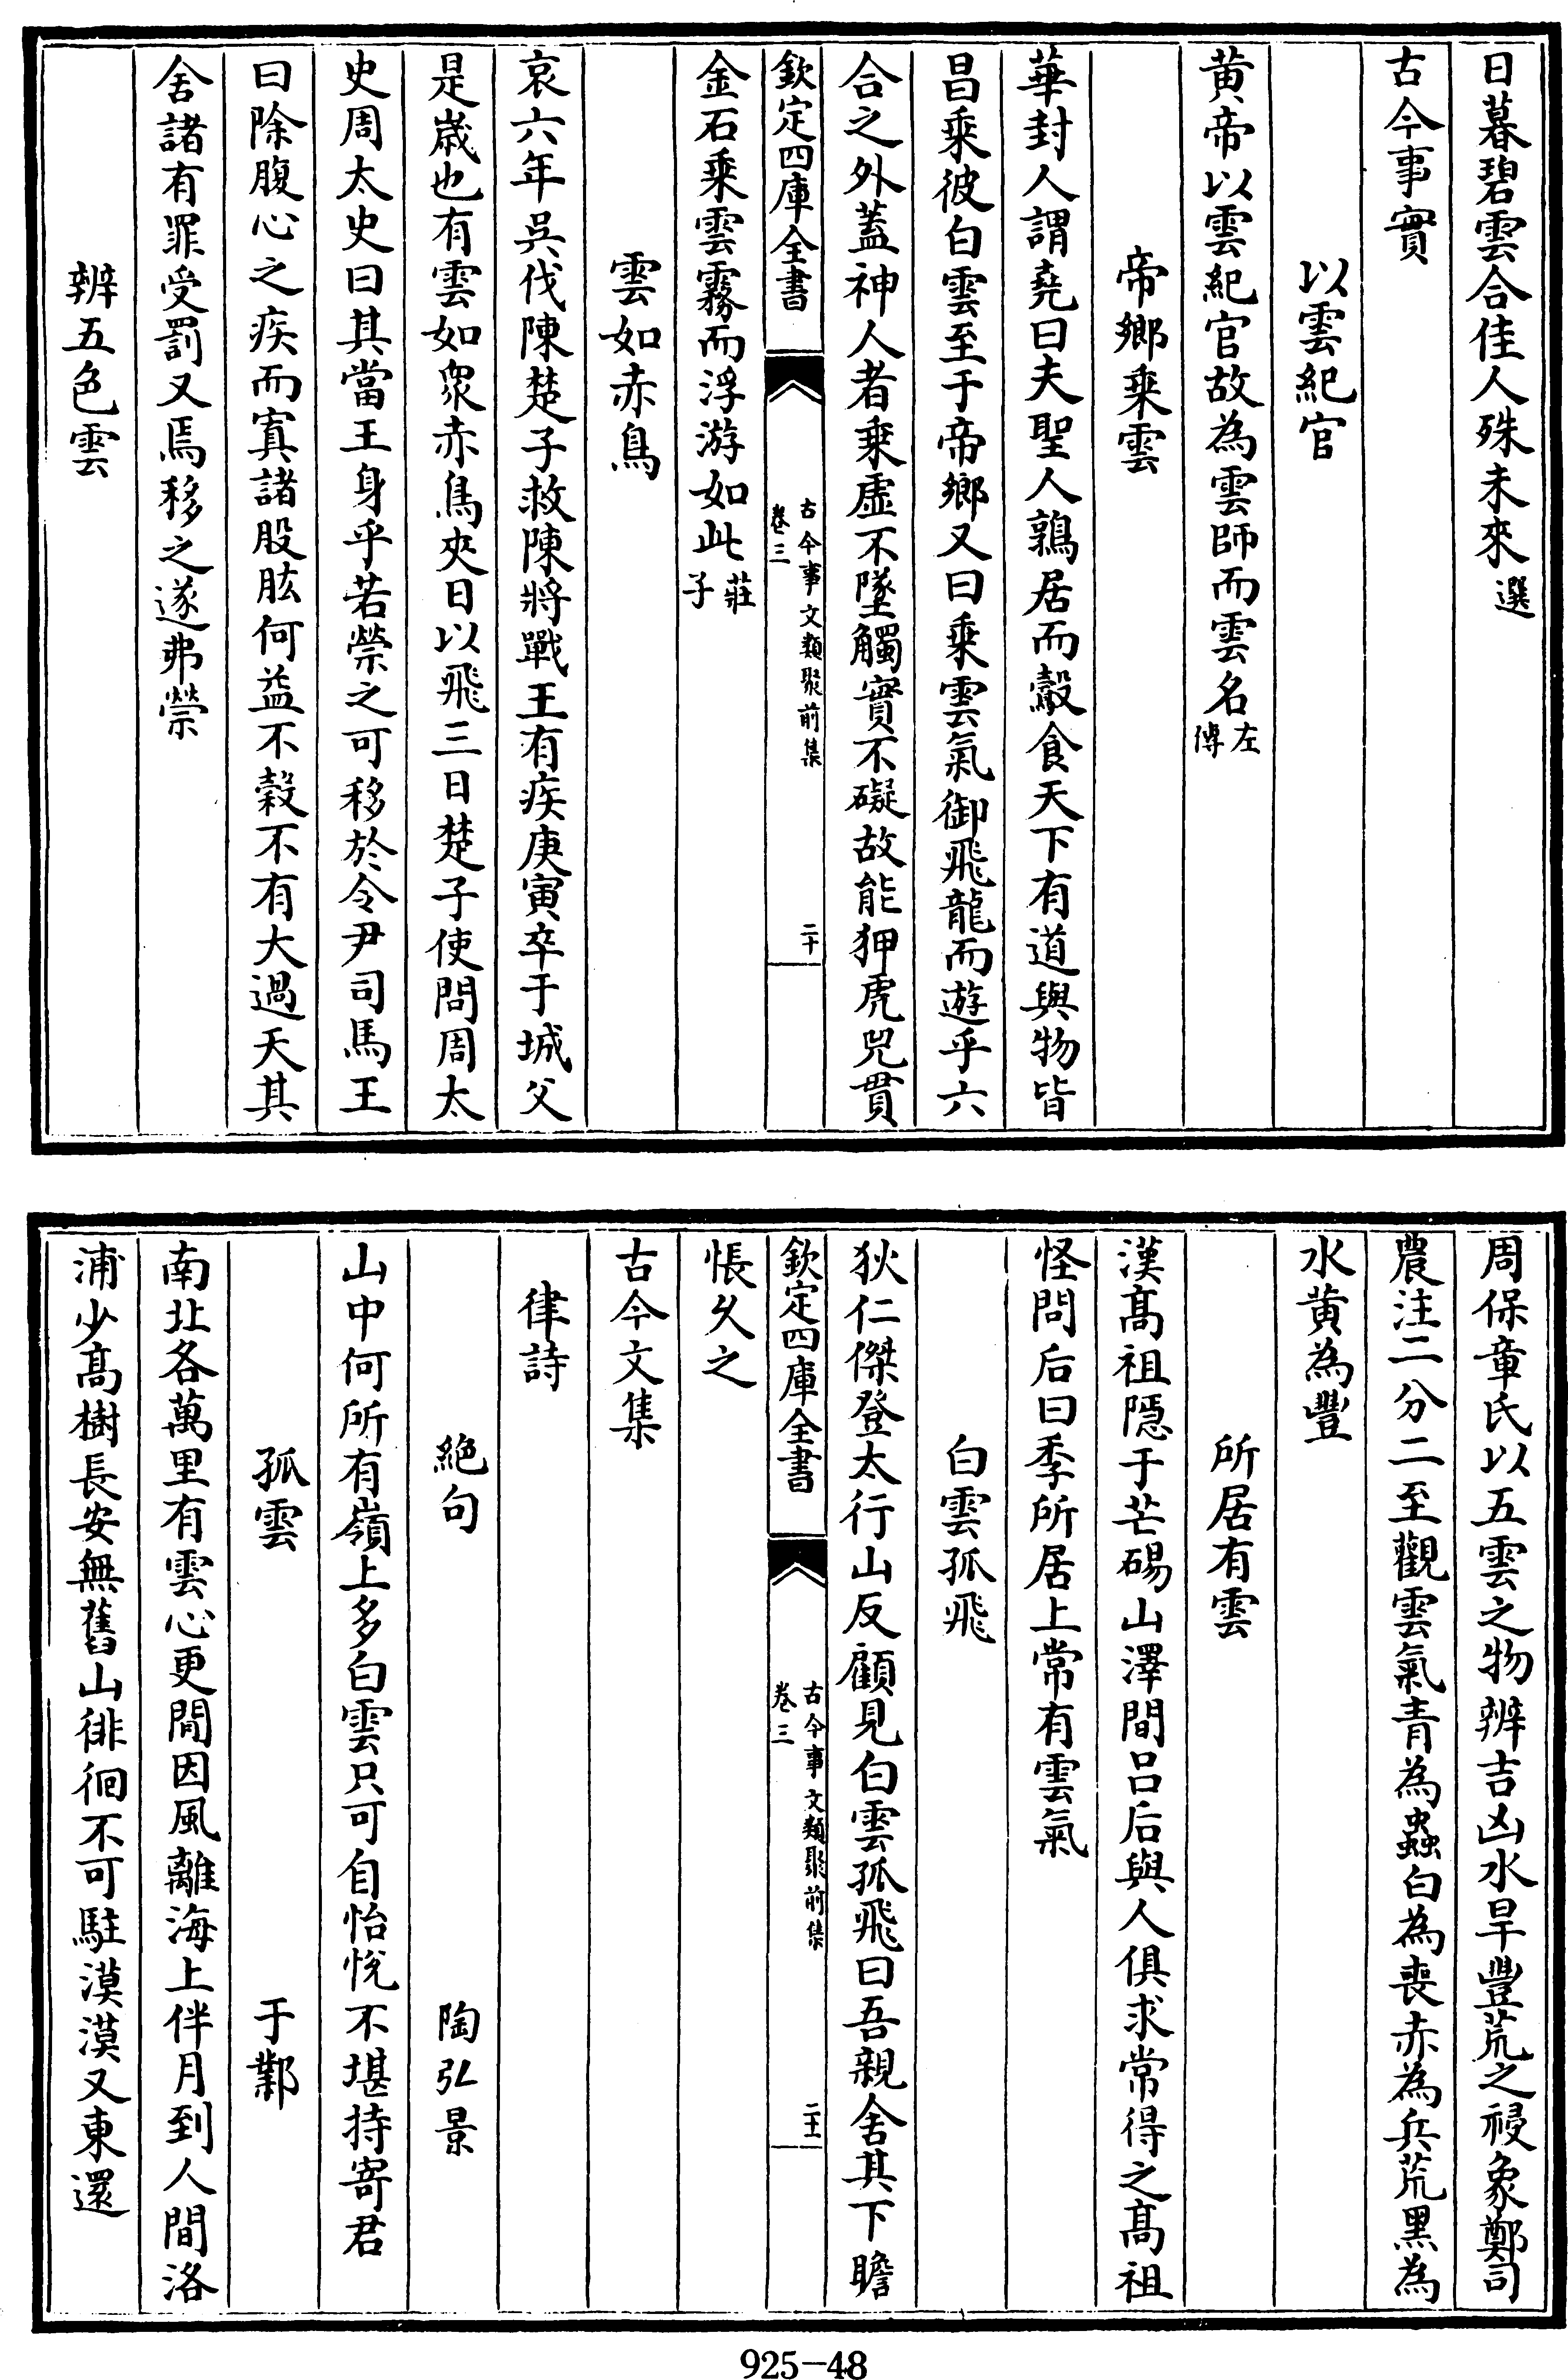 日暮碧雲合佳人殊未來選
古今事實
以雲紀官
黄帝以雲紀官故為雲師而雲名左傳
帝鄉乗雲
華封人謂堯曰夫聖人鶉居而鷇食天下有道與物皆
昌乗彼白雲至于帝鄉又曰乗雲氣御飛龍而遊乎六
合之外蓋神人者乗虚不墜觸實不礙故能狎虎兕貫
欽定四庫全書 古今事文類聚前集 卷三 二十
金石乗雲霧而浮游如此莊子
雲如赤鳥
哀六年呉伐陳楚子救陳將戰王有疾庚寅卒于城父
是嵗也有雲如衆赤鳥夾日以飛三日楚子使問周太
史周太史曰其當王身乎若禜之可移於令尹司馬王
曰除腹心之疾而寘諸股肱何益不榖不有大過天其
舍諸有罪受罰又焉移之遂弗禜
辨五色雲
周保章氏以五雲之物辨吉凶水旱豐荒之祲象鄭司
農注二分二至觀雲氣青為蟲白為喪赤為兵荒黒為
水黄為豐
所居有雲
漢髙祖隱于芒碭山澤間吕后與人俱求常得之髙祖
怪問后曰季所居上常有雲氣
白雲孤飛
狄仁傑登太行山反顧見白雲孤飛曰吾親舍其下瞻
欽定四庫全書 古今事文類聚前集 卷三 二十一
悵久之
古今文集
律詩
絶句 陶弘景
山中何所有嶺上多白雲只可自怡悅不堪持寄君
孤雲 于鄴
南北各萬里有雲心更閒因風離海上伴月到人間洛
浦少髙樹長安無舊山徘徊不可駐漠漠又東還
925-48